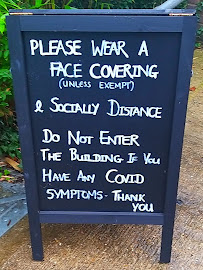 PLEASE WEAR A
FACE COVERING
(UNLESS EXEMPT)
& SOCIALLY DISTANCE
DO NOT ENTER
THE BUILDING IF YOU
HAVE ANY COVID
SYMPTOMS - THANK
YOU